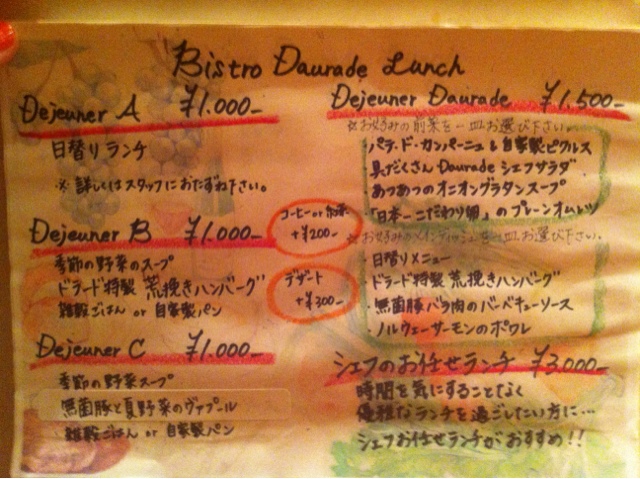 Bistro Daurade Lunch
Dejeuner A ¥1.000-
日替りランチ
※詳しくはスタッフにおたずね下さい。
Dejeuner B ¥1.000-
季節の野菜のスープ
ドラード特製 荒挽きハンバーグ
雑穀ごはん or 自家製パン
コーヒー or 紅茶
+¥200-
デザート
+¥300-
Dejeuner C ¥1.000-
季節の野菜スープ
無菌豚と夏野菜のヴァプール
雑穀ごはん or 自家製パン
Dejeuner Daurade ¥1.500-
☆お好みの前菜を一皿お選び下さい。
・パテ・ド・カンパーニュ & 自家製ピクルス
・具だくさん Daurade シェフサラダ
・あつあつのオニオングラタンスープ
・「日本一こだわり卵」のプレーンオムレツ
☆お好みのメインディッシュを一皿お選び下さい。
・日替りメニュー
・ドラード特製 荒挽きハンバーグ
・無菌豚バラ肉のバーベキューソース
・ノルウェーサーモンのポワレ
シェフのお任せランチ ¥3,000-
時間を気にすることなく
優雅なランチを過ごしたい方に…
シェフお任せランチがおすすめ!!